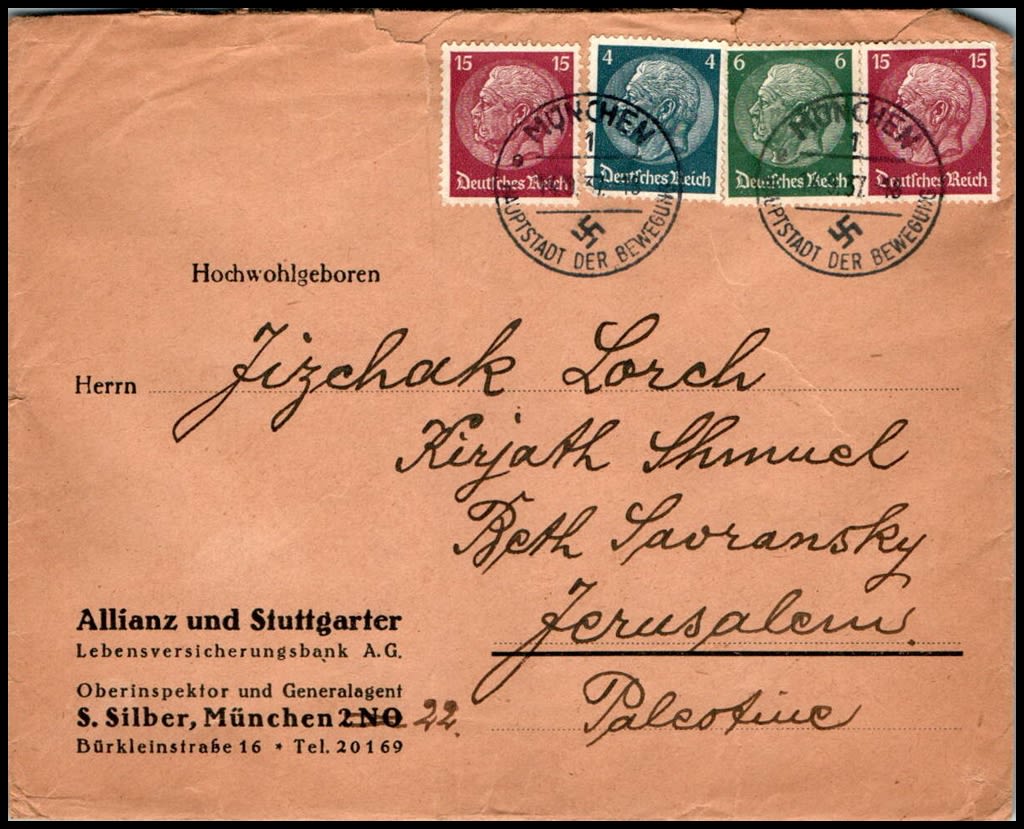 15 15
Deutsches Reich
4 4
Deutsches Reich
6 6
Deutsches Reich
15 15
Deutsches Reich
MÜNCHEN
1
37
HAUPTSTADT DER BEWEGUNG
MÜNCHEN
1
37
HAUPTSTADT DER BEWEGUNG
Hochwohlgeboren
Herrn Jizchak Lorch
Kirjath Shmuel
Beth Savransky
Jerusalem.
Palestine
Allianz und Stuttgarter
Lebensversicherungsbank A.G.
Oberinspektor und Generalagent
S. Silber, München 2 NO 22.
Bürkleinstraße 16 * Tel. 20169